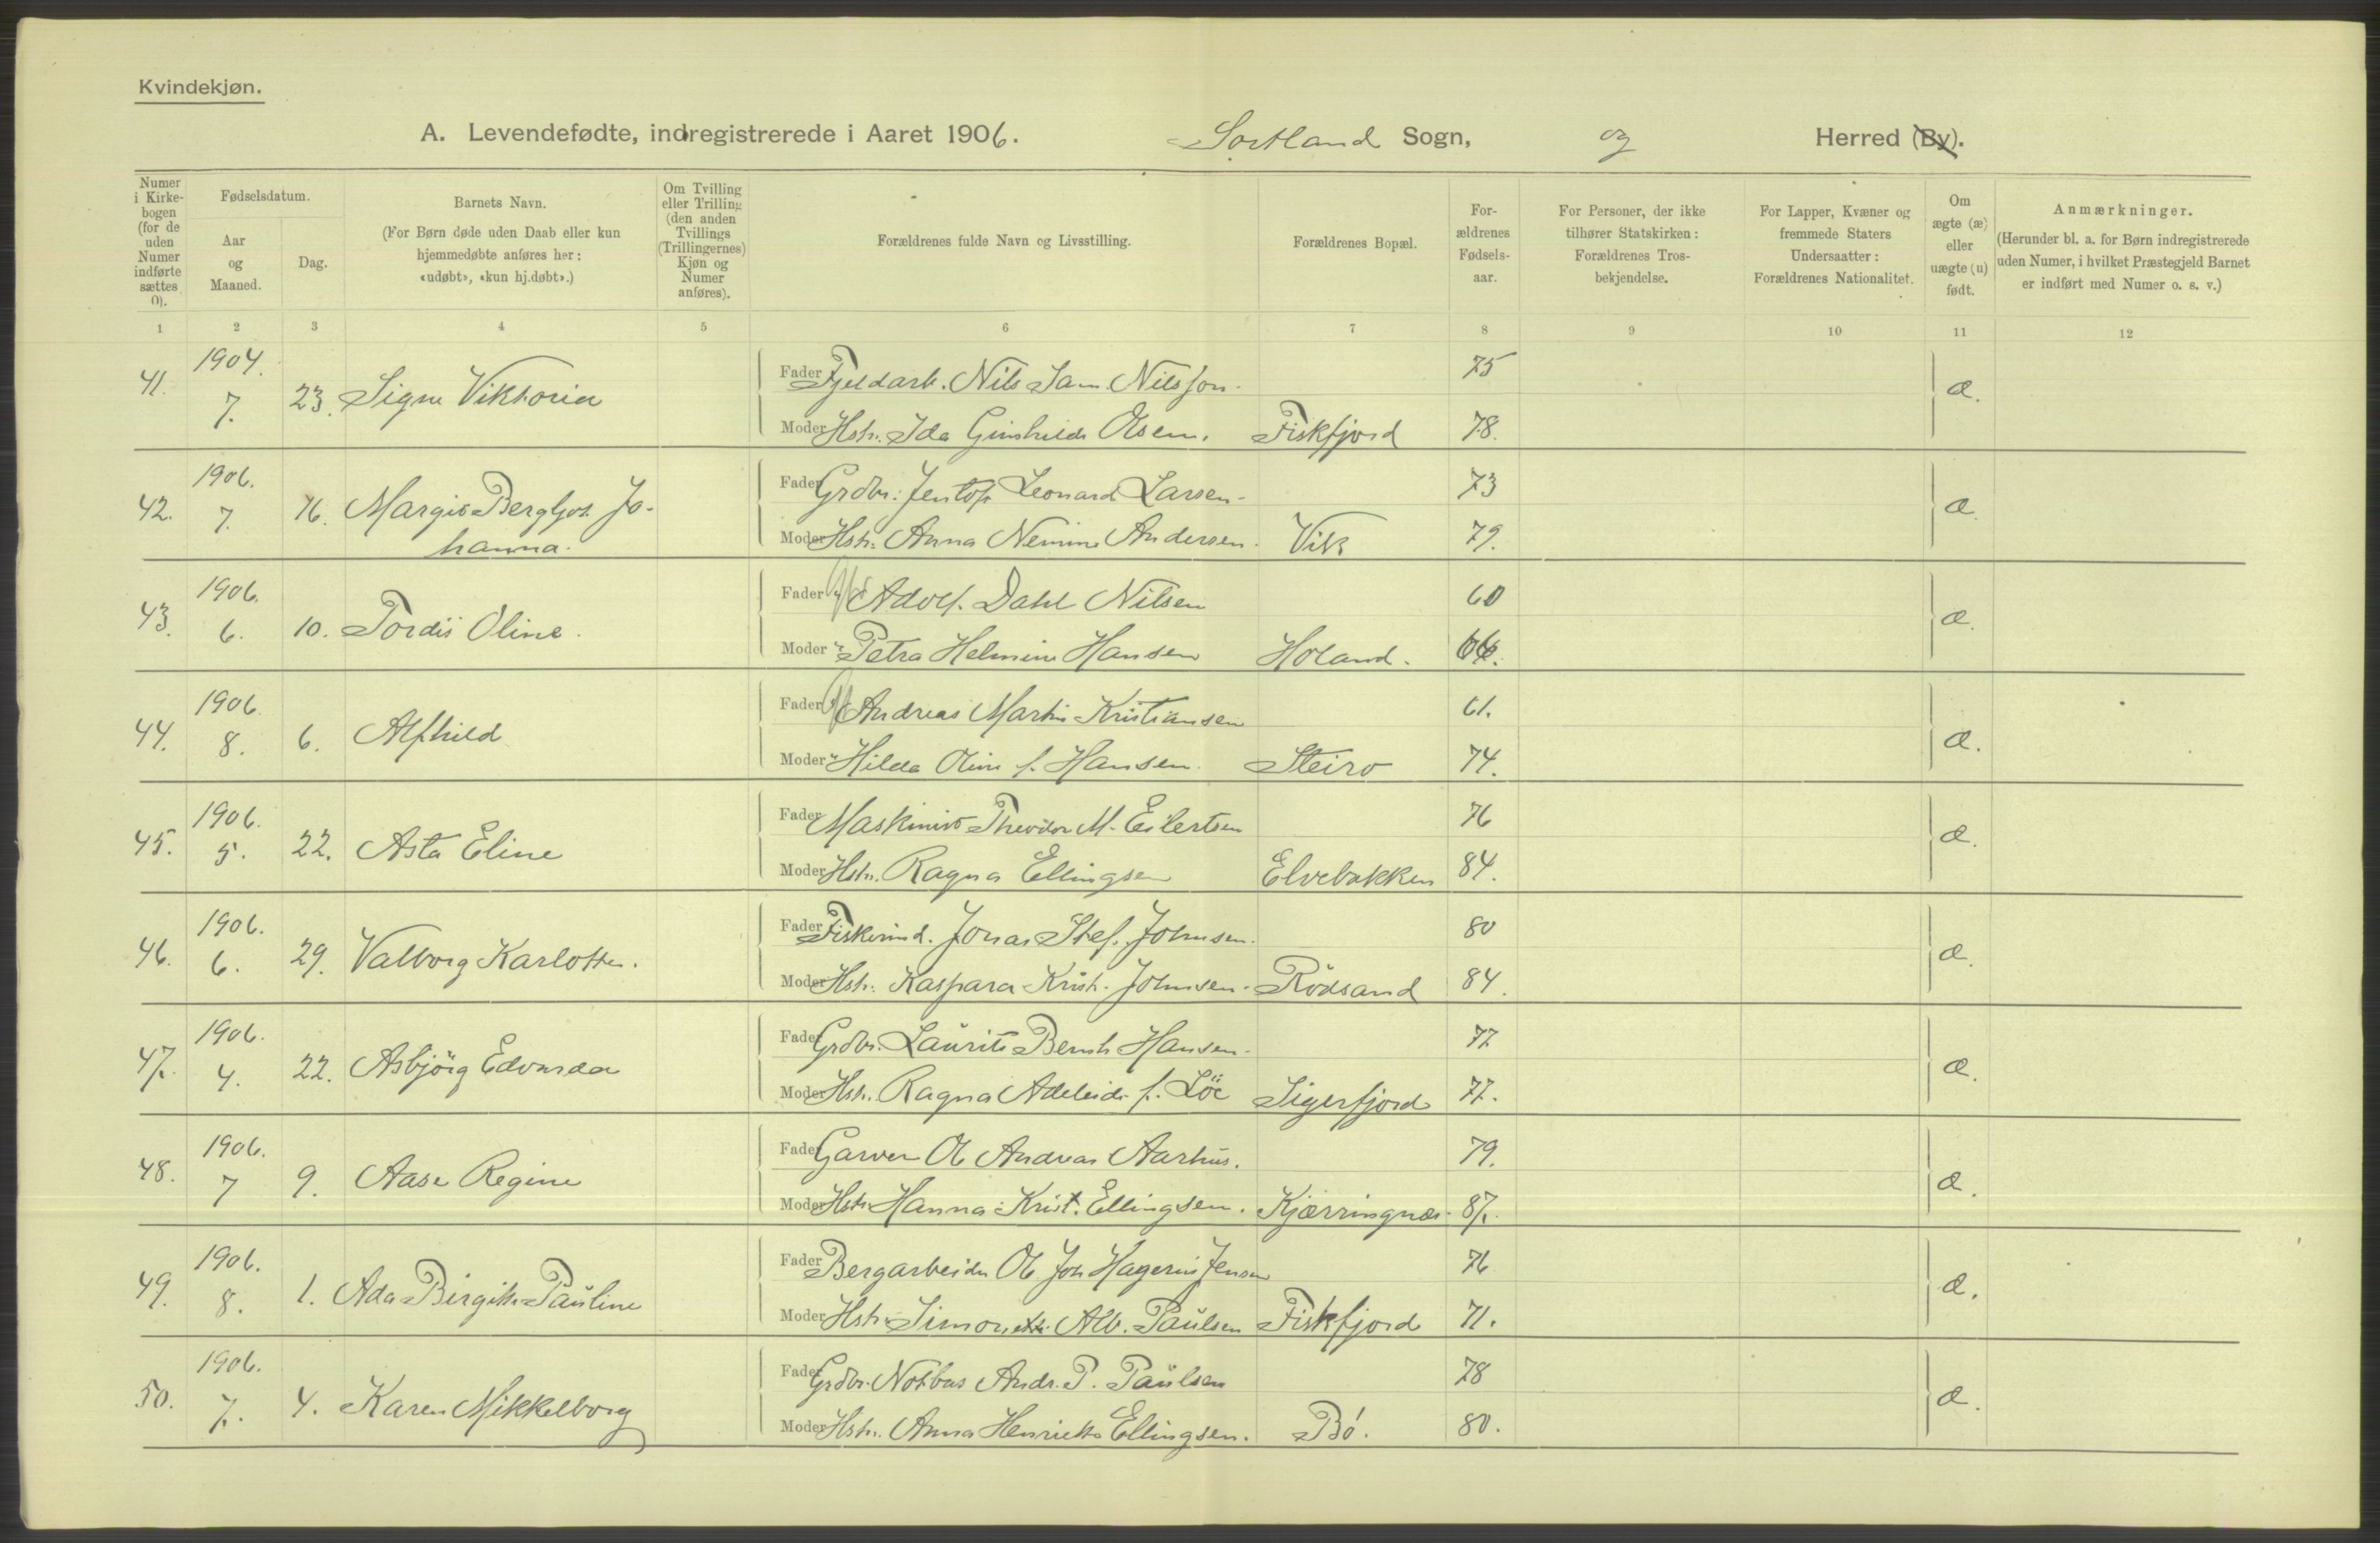 Kvindekjøn.
A. Levendefødte, indregistrerede i Aaret 1906. Sortland Sogn, og Herred (By).
Numer i Kirkebogen (for de uden Numer indførte sættes 0).
Fødselsdatum.
Aar og Maaned.
Dag.
Barnets Navn.
(For Børn døde uden Daab eller kun hjemmedøbte anføres her: «udøbt», «kun hj.døbt».)
Om Tvilling eller Trilling (den anden Tvillings (Trillingernes) Kjøn og Numer anføres).
Forældrenes fulde Navn og Livsstilling.
Forældrenes Bopæl.
Forældrenes Fødselsaar.
For Personer, der ikke tilhører Statskirken: Forældrenes Trosbekjendelse.
For Lapper, Kvæner og fremmede Staters Undersaatter: Forældrenes Nationalitet.
Om ægte (æ) eller uægte (u) født.
Anmærkninger.
(Herunder bl. a. for Børn indregistrerede uden Numer, i hvilket Præstegjeld Barnet er indført med Numer o. s. v.)
1 2 3 4 5 6 7 8 9 10 11 12
41. 1904. 7. 23. Signe Viktoria Fader Fjeldarb. Nils Jam. Nilsson. 75 æ.
Moder Hstr. Ida Gunhilde Olsen. Fiskfjord 78.
42. 1906. 7. 16. Margit Bergljot Jo- Fader Grdbr. Jentoft Leonard Larsen 73 æ.
hanna. Moder Hstr. Anna Nemine Andersen. Vik 79.
43. 1906. 6. 10. Tordis Oline. Fader Adolf Dahl Nilsen 60 æ.
Moder " Petra Helmine Hansen Holand. 66.
44. 1906. 8. 6. Alfhild Fader Andreas Martin Kristiansen 61. æ.
Moder " Hilda Oline f. Hansen. Steiro 74.
45. 1906. 5. 22. Asta Eline Fader Maskinist Theodor M. Eilertsen 76 æ.
Moder Hstr. Ragna Ellingsen Elvebakken 84.
46. 1906. 6. 29. Valborg Karlotte. Fader Fiskerind. Jonas Stef. Johnsen. 80 æ.
Moder Hstr. Kaspara Krist. Johnsen. Rödsand 84.
47. 1906. 4. 22. Asbjörg Edvarda Fader Grdbr. Laurits Bernh Hansen. 77 æ.
Moder Hstr. Ragna Adeleide f. Löe Sigerfjord 77.
48. 1906. 7 9. Aase Regine Fader Garver Ol Andreas Aarhus. 79. æ.
Moder Hstr. Hanna Krist. Ellingsen. Kjærringnes. 87.
49. 1906. 8. 1. Ada Birgitte Pauline Fader Bergarbeider Ol Joh Hagerus Jensen 76 æ.
Moder Hstr. Simonette Alb. Paulsen Fiskfjord 71.
50. 1906. 7. 4. Karen Mikkelborg Fader Grdbr. Andr. P. Paulsen 78 æ.
Moder Hstr. Anna Henriette Ellingsen. Bö. 80.